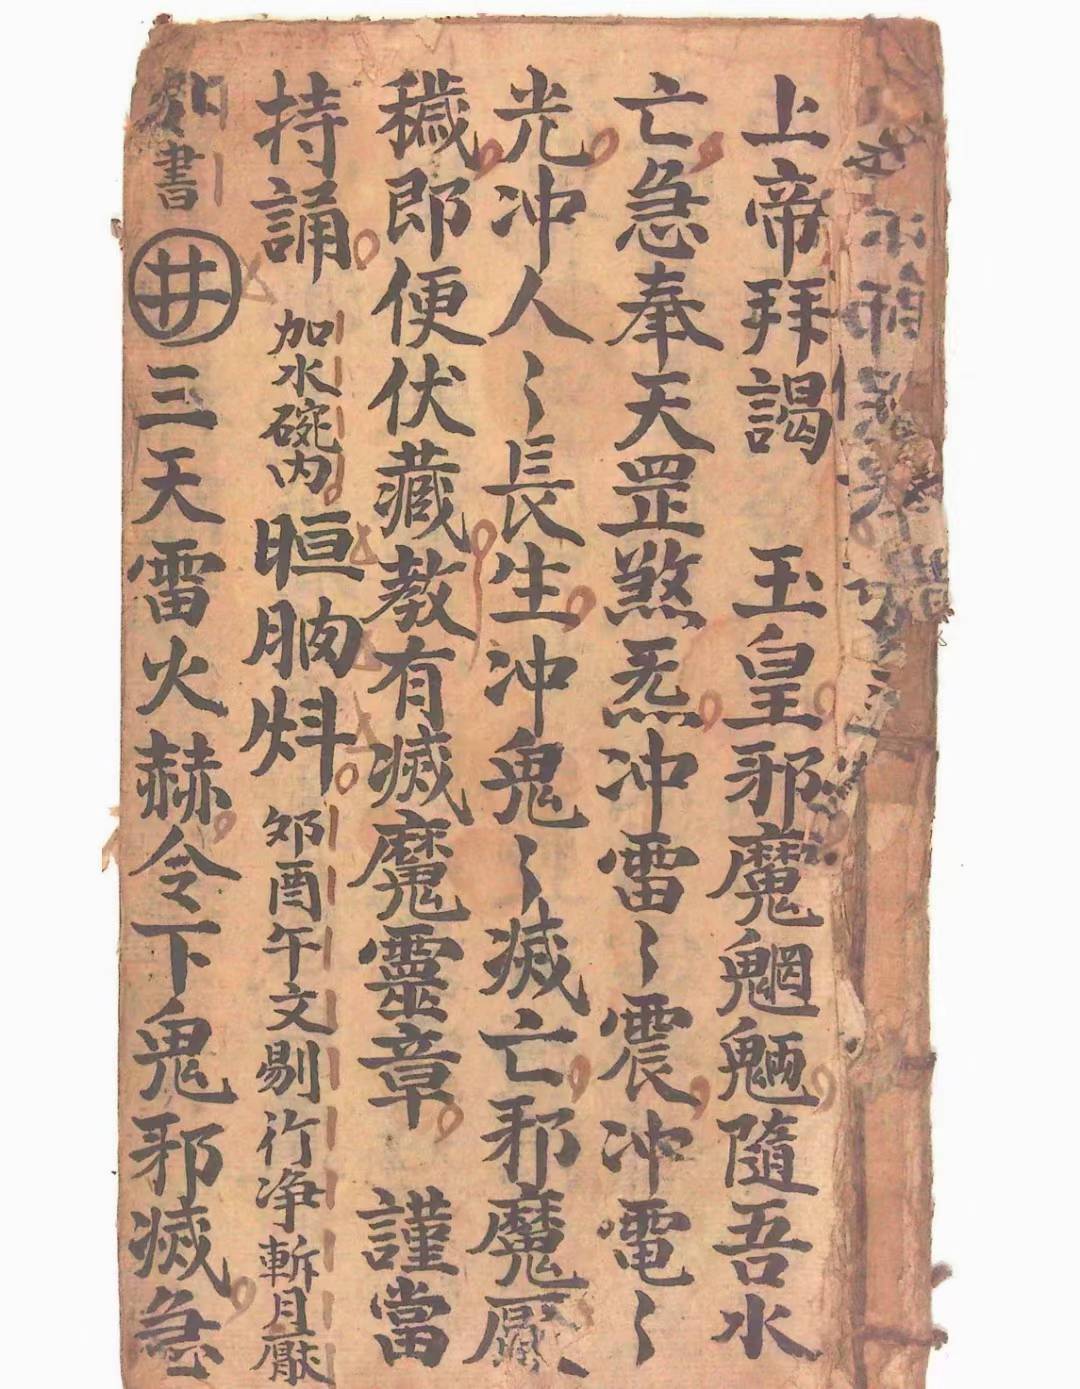 上帝拜謁　玉皇邪魔魍魎隨吾水
亡急奉天罡煞炁冲雷〻震冲電〻
光冲人〻長生冲鬼〻滅亡邪魔厭
穢即便伏藏教有滅魔靈章　謹當
持誦　加水碗内　晅朒炓　夘酉午文剔行净斬且厭
書㊉三天雷火赫令下鬼邪滅急